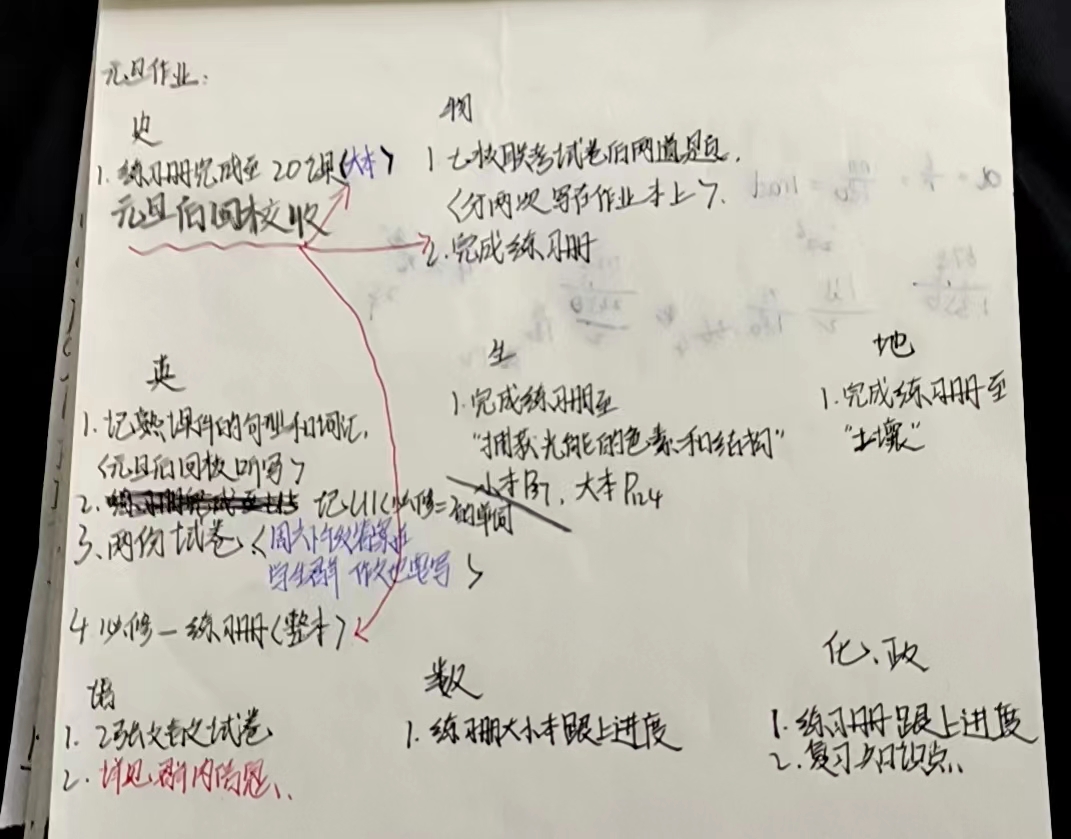 元旦作业:
史
1. 练习册完成至20课(大本)
元旦后回校收
物
1 七校联考试卷后两道题,
<分两次写在作业本上>.
2. 完成练习册
英
1. 记熟课件的句型和词汇,
<元旦后回校听写>
2. 记U1<必修二的单词
3、两份试卷、<周六下午收答案在
学生群 作文也要写>
4 必修一练习册(整本)
生
1. 完成练习册至
"捕获光能的色素和结构"
小本P37, 大本P124
地
1. 完成练习册至
"土壤"
语
1. 2张文言文试卷
2. 详见群内信息、
数
1. 练习册大小本跟上进度
化、政
1. 练习册跟上进度
2. 复习知识点、